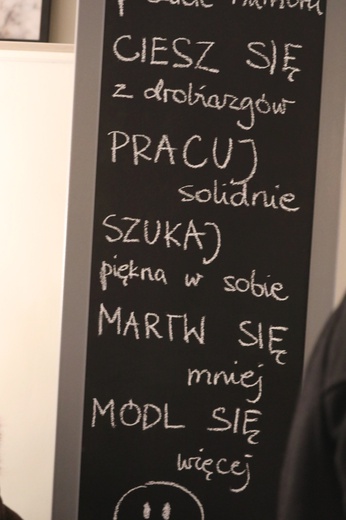 CIESZ SIĘ
z drobiazgów
PRACUJ
solidnie
SZUKAJ
piękna w sobie
MARTW SIĘ
mniej
MÓDL SIĘ
więcej